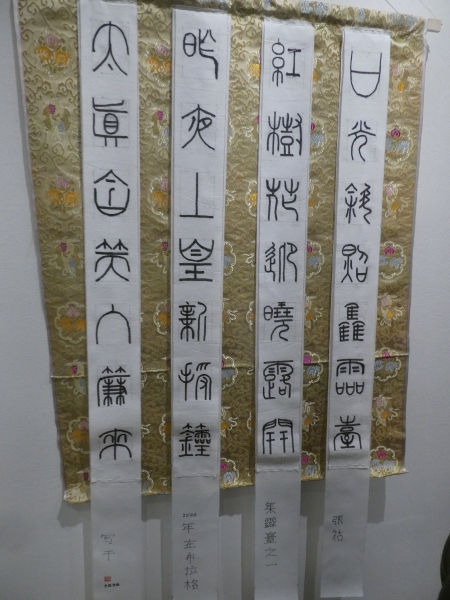 日光斜照集靈臺
張祜
紅樹花迎曉露開
集靈臺之一
昨夜上皇新授
年在布拉格
太真含笑入簾來
写于